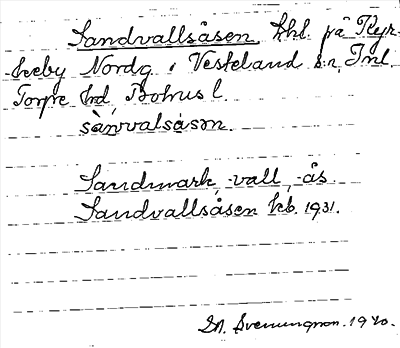 Sandvallsåsen, khl. på Kyr-
keby Nordg. i Vesteland sn, Inl.
Torpe hd, Bohus l.
sànvalsåsən.
Sandmark, -vall, -ås.
Sandvallsåsen kb. 1931.
Svenungson. 1940.